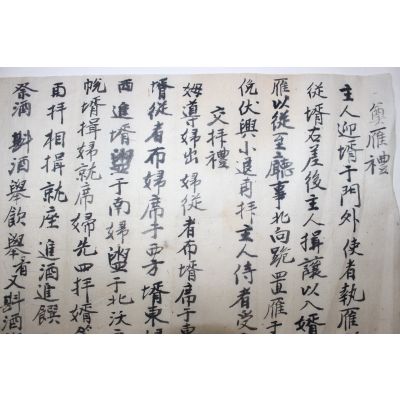 奠雁禮
主人迎壻于門外使者執雁
從壻右差後主人揖讓以入壻
雁以從至廳事北向跪置雁于
俛伏興小退再拜主人侍者受
交拜禮
姆導婦出婦從者布壻席于東
壻從者布婦席于西方壻東婦
西進壻盥于南婦盥于北沃
帨壻揖婦就席婦先四拜壻答
再拜相揖就座進酒進饌
祭酒斟酒擧飮擧肴又斟酒